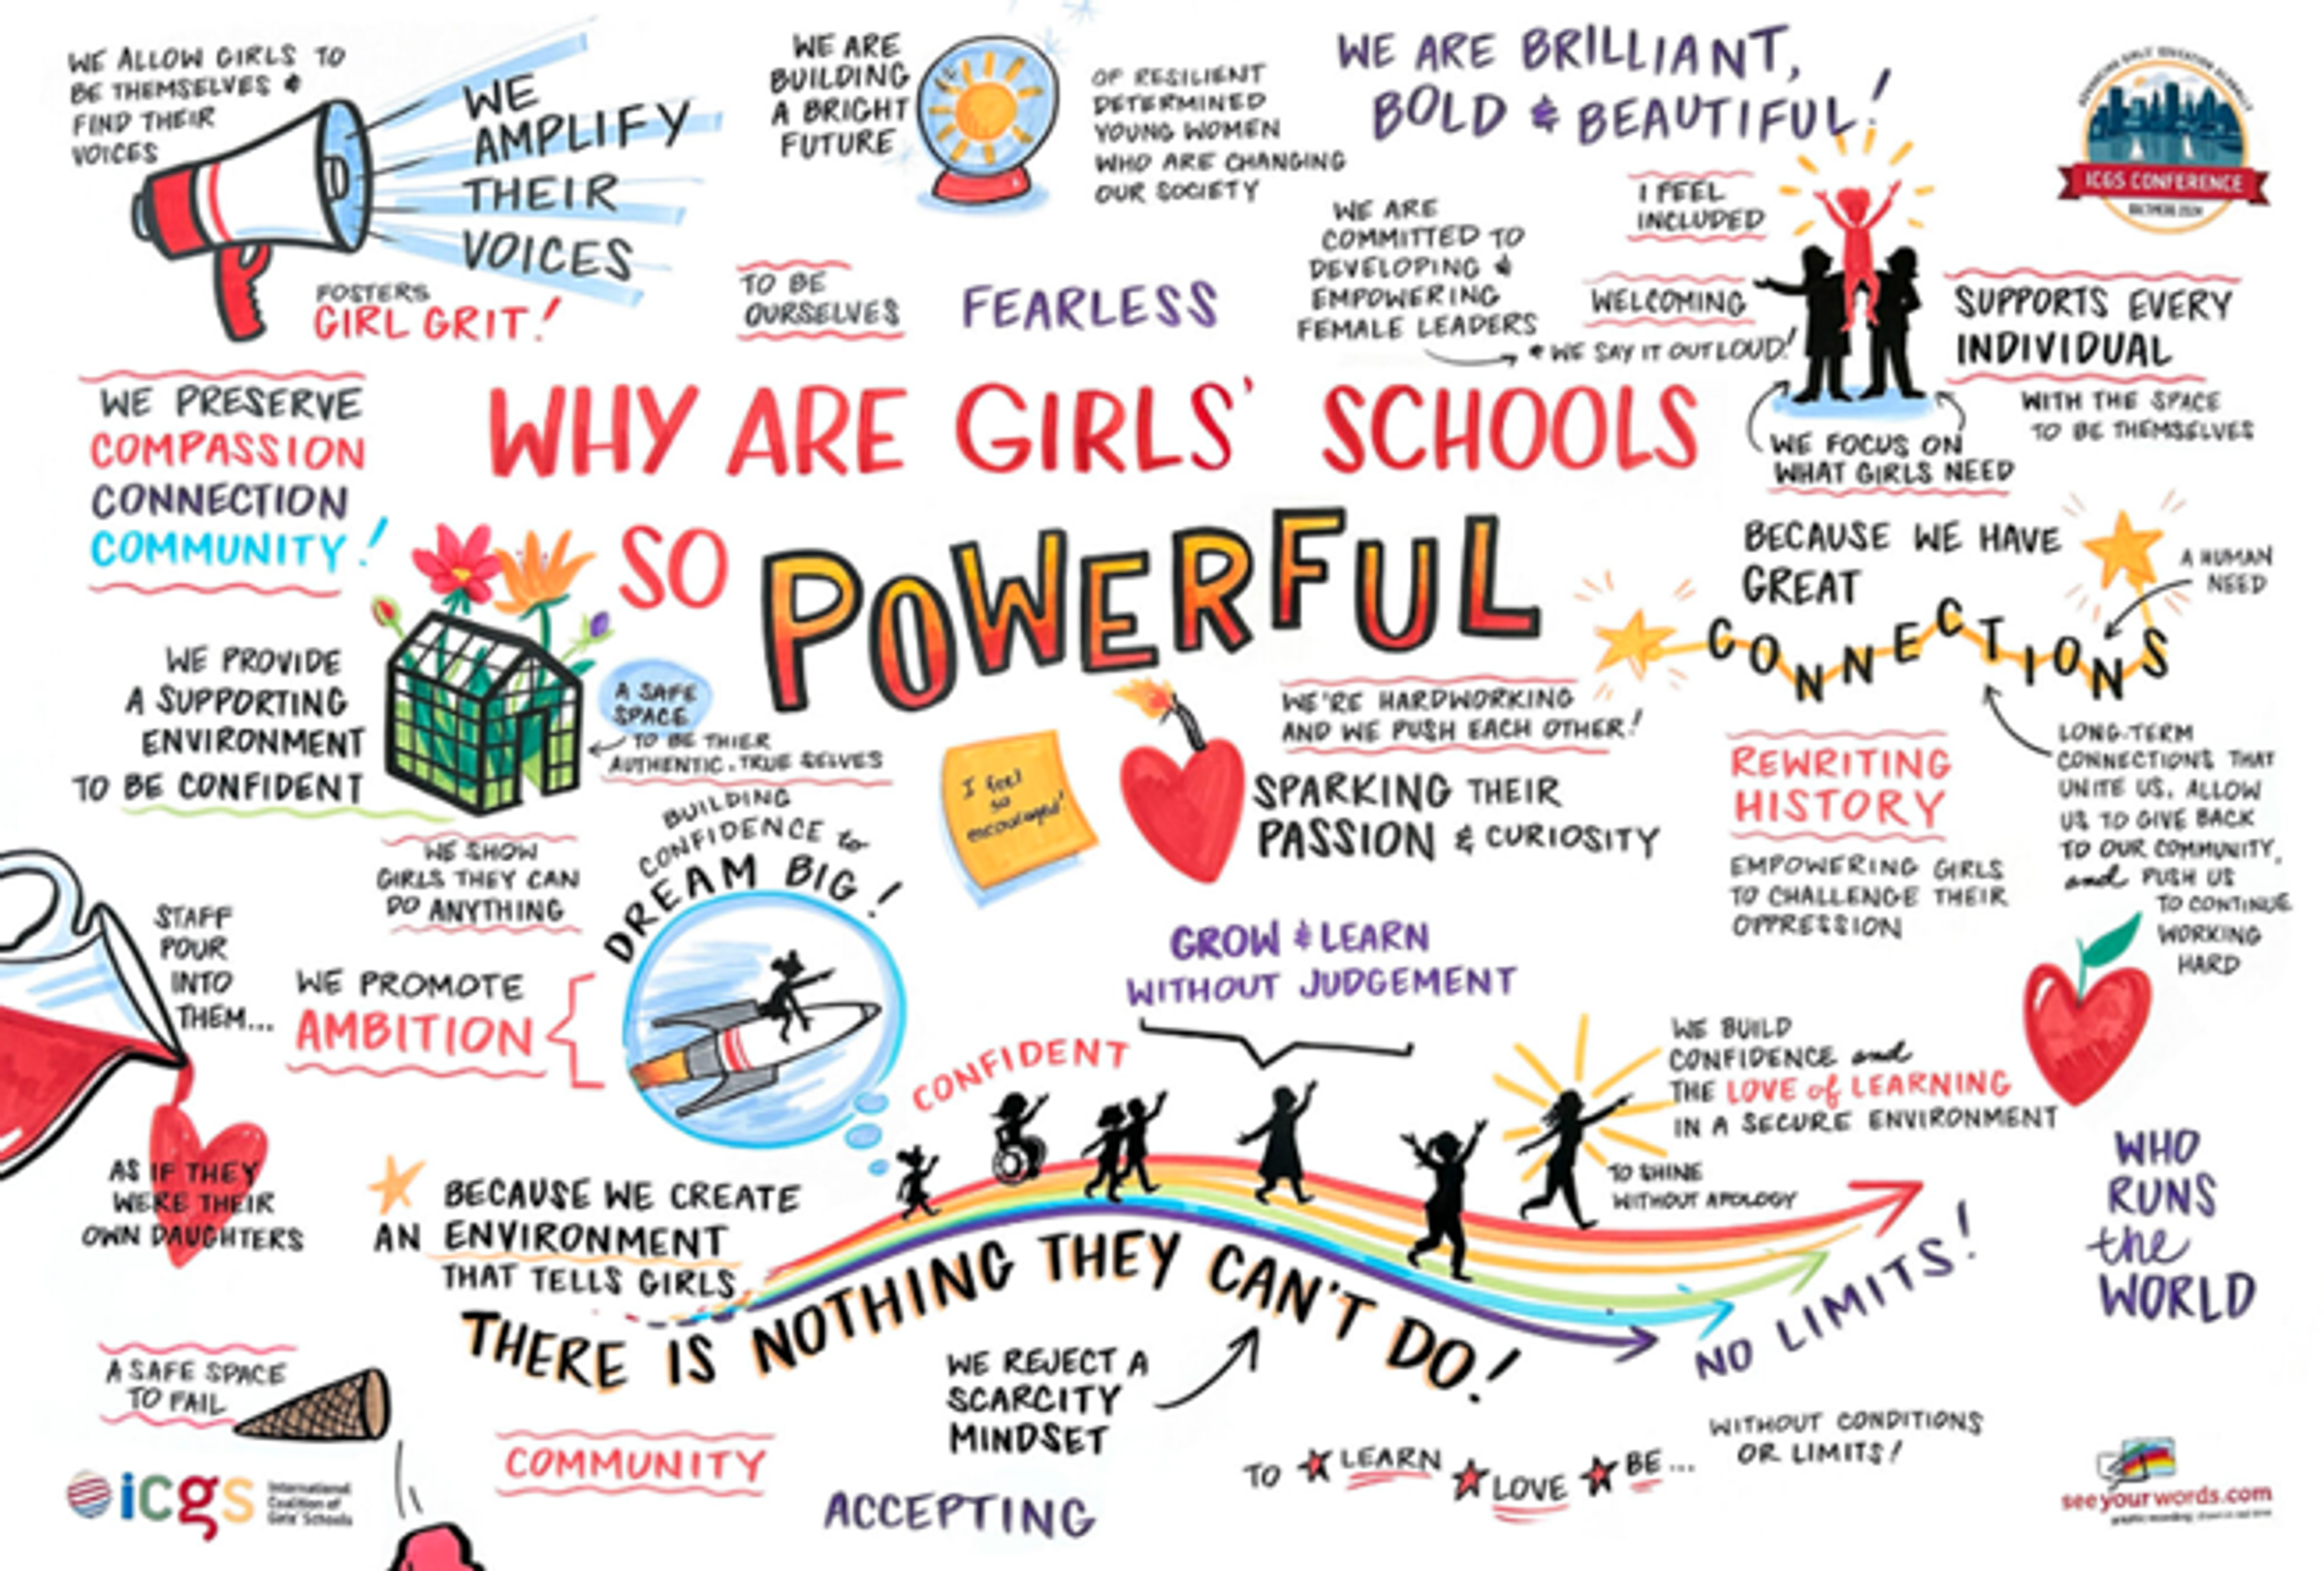 WE ALLOW GIRLS TO
BE THEMSELVES &
FIND THEIR
VOICES
WE
AMPLIFY
THEIR
VOICES
FOSTERS
GIRL GRIT!
WE ARE
BUILDING
A BRIGHT
FUTURE
OF RESILIENT
DETERMINED
YOUNG WOMEN
WHO ARE CHANGING
OUR SOCIETY
WE ARE BRILLIANT,
BOLD & BEAUTIFUL!
ICGS CONFERENCE
TO BE
OURSELVES
FEARLESS
WE ARE
COMMITTED TO
DEVELOPING &
EMPOWERING
FEMALE LEADERS
& WE SAY IT OUT LOUD!
I FEEL
INCLUDED
WELCOMING
SUPPORTS EVERY
INDIVIDUAL
WITH THE SPACE
TO BE THEMSELVES
WE FOCUS ON
WHAT GIRLS NEED
WE PRESERVE
COMPASSION
CONNECTION
COMMUNITY!
WHY ARE GIRLS' SCHOOLS
SO POWERFUL
BECAUSE WE HAVE
GREAT
CONNECTIONS
A HUMAN
NEED
WE PROVIDE
A SUPPORTING
ENVIRONMENT
TO BE CONFIDENT
A SAFE
SPACE
TO BE THIER
AUTHENTIC, TRUE SELVES
I feel
so
encouraged!
WE'RE HARDWORKING
AND WE PUSH EACH OTHER!
SPARKING THEIR
PASSION & CURIOSITY
REWRITING
HISTORY
EMPOWERING GIRLS
TO CHALLENGE THEIR
OPPRESSION
LONG-TERM
CONNECTIONS THAT
UNITE US, ALLOW
US TO GIVE BACK
TO OUR COMMUNITY,
and PUSH US
TO CONTINUE
WORKING
HARD
WE SHOW
GIRLS THEY CAN
DO ANYTHING
BUILDING
CONFIDENCE to
DREAM BIG!
STAFF
POUR
INTO
THEM...
AS IF THEY
WERE THEIR
OWN DAUGHTERS
WE PROMOTE
AMBITION
GROW & LEARN
WITHOUT JUDGEMENT
CONFIDENT
WE BUILD
CONFIDENCE and
THE LOVE of LEARNING
IN A SECURE ENVIRONMENT
TO SHINE
WITHOUT APOLOGY
WHO
RUNS
the
WORLD
BECAUSE WE CREATE
AN ENVIRONMENT
THAT TELLS GIRLS
THERE IS NOTHING THEY CAN'T DO!
NO LIMITS!
WE REJECT A
SCARCITY
MINDSET
A SAFE SPACE
TO FAIL
COMMUNITY
ACCEPTING
TO LEARN LOVE BE...
WITHOUT CONDITIONS
OR LIMITS!
icgs
International
Coalition of
Girls' Schools
seeyourwords.com